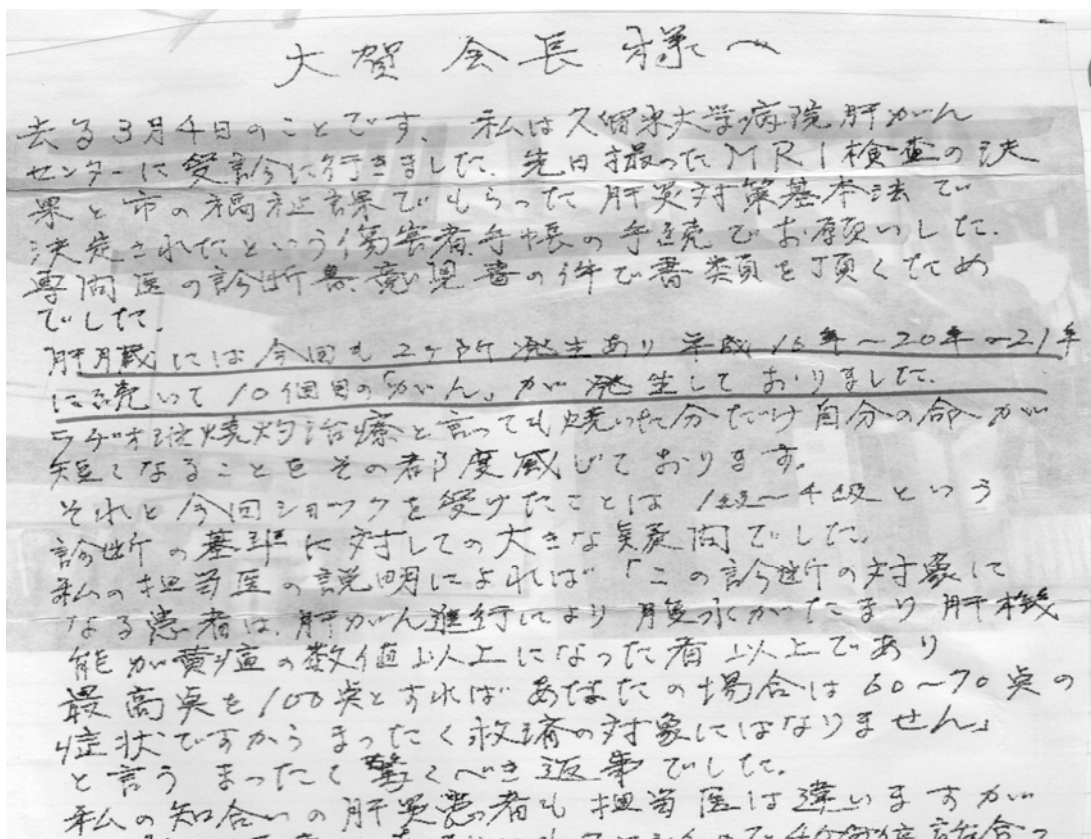 大賀会長様へ
去る3月4日のことです、私は久留米大学病院肝がん
センターに受診に行きました、先日撮ったMRI検査の決
果と市の福祉課でもらった肝炎対策基本法で
決定されたという傷害者手帳の手続でお願いした、
専門医の診断書、意見書の件で書類を頂くため
でした。
肝臓には今回も2ヶ所発生あり平成16年〜20年〜21年
に続いて10個目の「がん」が発生しておりました。
ラヂオ波焼灼治療と言っても焼いた分だけ自分の命が
短くなることをその都度感じております。
それと今回ショックを受けたことは1級〜4級という
診断の基準に対しての大きな疑問でした。
私の担当医の説明によれば「この診断の対象に
なる患者は、肝がん進行により腹水がたまり肝機
能が黄疸の数値以上になった者以上であり
最高点を100点とすればあなたの場合は60〜70点の
症状ですからまったく救済の対象にはなりません」
と言うまったく驚くべき返事でした。
私の知合いの肝炎患者も担当医は違いますが